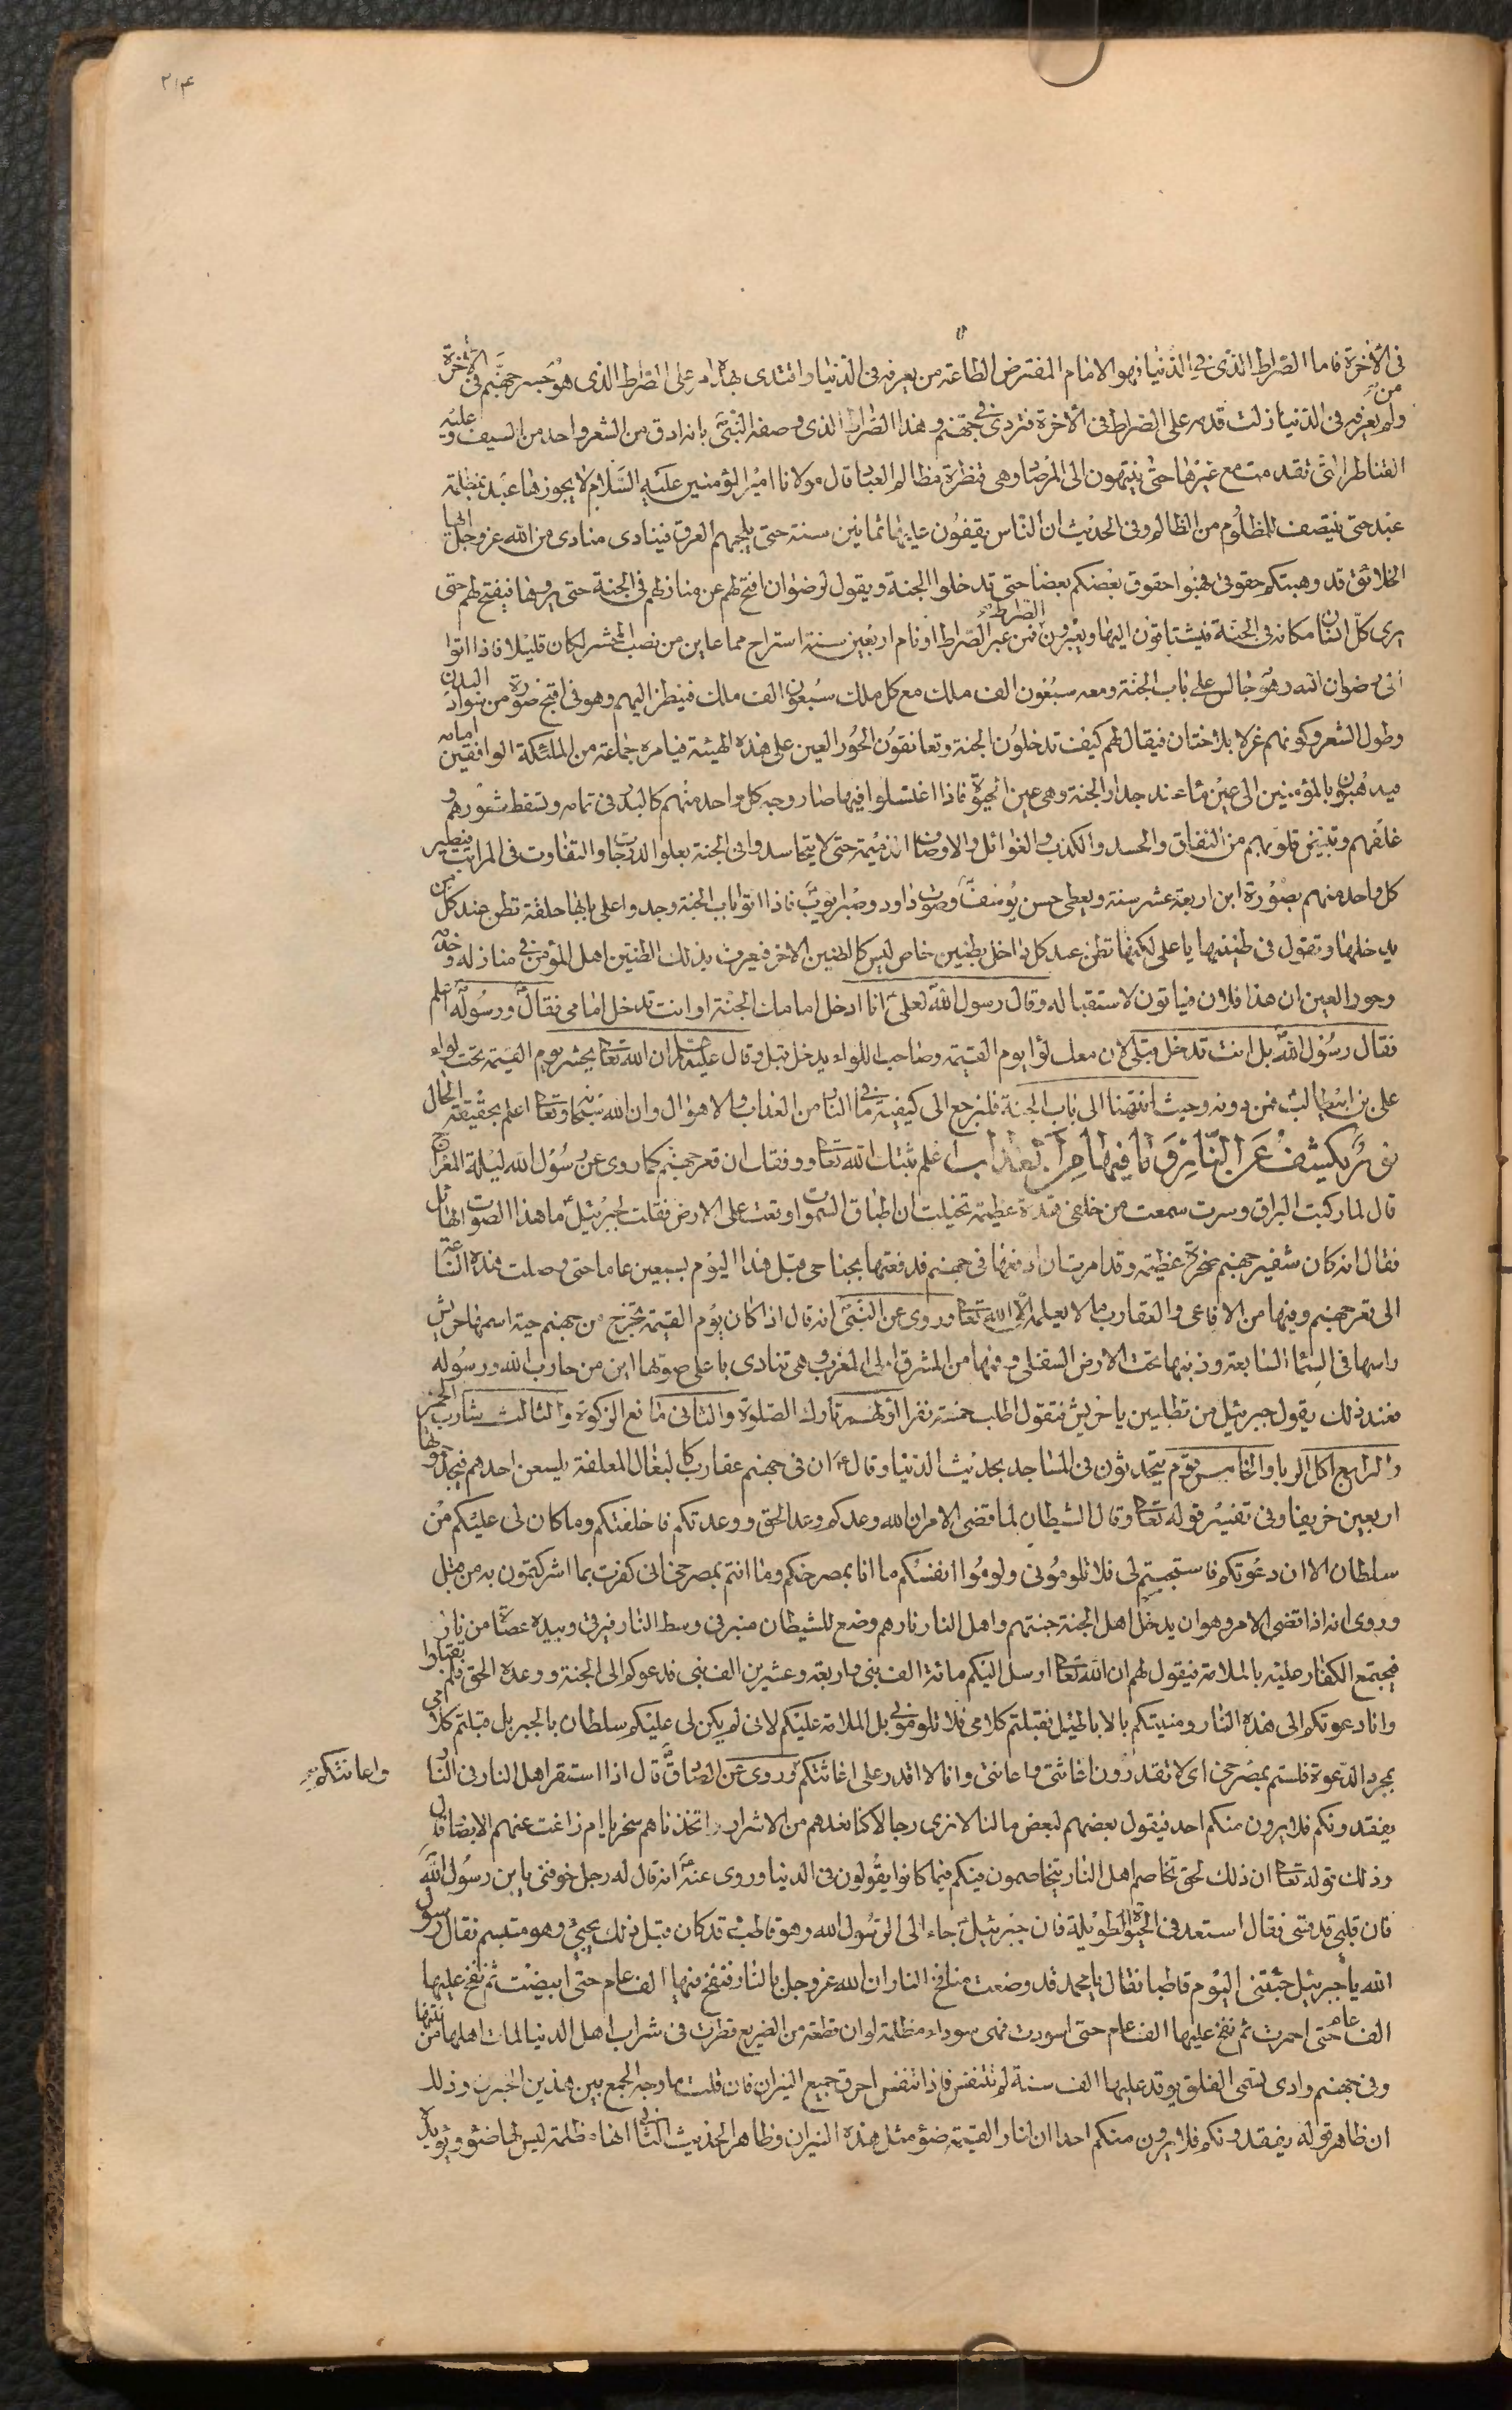 ٣١۴
فى الأخرة فاما الصّراط الذى فى الدّنيا فهو الامام المفترض الطاعة من يعرفه فى الدّنيا واقتدى بهداه مر على الصّراط الذى هو جسر جهنّم فى الأخرة
ومن لم يعرفه فى الدّنيا زلت قدمه على الصّراط فى الأخرة فتردى فى جهنّم وهذا الصّراط الذى وصفه النّبىّ بانه ادق من الشعر واحد من السيف وعليه
القناطر التى تقدمت مع غيرها حتى ينتهون الى المرصاد وهى قنطرة مظالم العباد قال مولانا امير المؤمنين عليه السّلام لا يجوزها عبد بمظلمة
عبد حتى ينتصف للمظلوم من الظالم وفى الحديث ان النّاس يقيفون عليها ثمانين سنة حتى يلجمهم العرق فينادى منادى من الله عز وجل ايها
الخلائق قد وهبتكم حقوقى فهبوا حقوق بعضكم بعضا حتى تدخلوا الجنة ويقول لرضوان افتح لهم عن منازلهم فى الجنة حتى يروها فيفتح لهم حتى
يرى كلّ انسان مكانه فى الجنّة فيشتاقون اليها ويعبرون الصّراط فمن عبر الصّراط او نام اربعين سنة استراح مما عاين من نصب المحشر لكان قليلا فاذا اتوا
اتى رضوان الله وهو جالس على باب الجنّة ومعه سبعون الف ملك مع كل ملك سبعون الف ملك فينظر اليهم وهو فى اقبح صورة من سواد البدن
وطول الشعر وكونهم غرلا بلا ختان فيقال لهم كيف تدخلون الجنة وتعانقون الحور العين على هذه الهيئة فيامر جماعة من الملئكة الواقفين امامه
فيذهبون بالمؤمنين الى عين ماء عند جدار الجنة وهى عين الحيوة فاذا اغتسلوا فيها صار وجه كل واحد منهم كالبدر فى تمامه وتسقط شعورهم و
غلفهم وتبيض قلوبهم من النفاق والحسد والكذب والغوائل والاوصاف الذميمة حتى لا يتحاسدوا فى الجنة بعلو الدرجات والتفاوت فى المراتب فيصير
كل واحد منهم بصورة ابن اربعة عشر سنة ويعطى حسن يوسف وصوت داود وصبر ايوب فاذا اتوا باب الجنة وجدوا على بابها حلقة تطن عند كل من
يدخلها وتقول فى طنينها يا على لكنها تطن عند كل داخل بطنين خاص ليس كالطنين الاخر فيعرف بذلك الطنين اهل المؤمن فى منازله وخدمه
وحور العين ان هذا فلان فياتون لاستقباله وقال رسول اللهّ لعلىّ انا ادخل امامك الجنّة او انت تدخل امامى فقال اللهّ ورسوله اعلم
فقال رسول اللهّ بل انت تدخل قبلى لان معك لواى يوم القيمة وصاحب اللواء يدخل قبل وقال عليه السلام ان الله تعالى يحشر يوم القيمة تحت لواء
على بن ابيطالب فمن دونه وحيث انتهينا الى باب الجنة فلنرجع الى كيفية ما فى النار من العذاب والاهوال وان الله سبحانه وتعالى اعلم بحقيقة الحال
نور يكشف عن النّار وما فيها من العذاب اعلم ثبتك الله تعالى ووفقك ان قعر جهنّم كما روى عن رسول الله ليلة المعراج
قال لما ركبت البراق وسرت سمعت من خلفى هدة عظيمة تخيلت ان اطباق السموات وقعت على الارض فقلت لجبرئيل ما هذا الصوت الهائل
فقال انه كان شفير جهنم صخرة عظيمة وقد امرت ان ادفعها فى جهنم فدفعتها بجناحى قبل هذا اليوم بسبعين عاما حتى وصلت هذه الساعة
الى قعر جهنم وفيها من الافاعى والعقارب ما لا يعلمه الّا الله تعالى وروى عن النبىّ انه قال اذا كان يوم القيمة تخرج من جهنم حية اسمها حريش
راسها فى السّماء السّابعة وذنبها تحت الارض السفلى وفمها من المشرق الى المغرب وهى تنادى باعلى صوتها اين من حارب الله ورسوله
فعند ذلك يقول جبرئيل من تطلبين يا حريش فتقول اطلب خمسة نفر الاولهم تارك الصّلوة والثانى مانع الزكوة والثالث شارب الخمر
والرابع اكل الربا والخامس قوم يتحدثون فى المساجد بحديث الدّنيا وقالّ ان فى جهنم عقارب كالبغال المعلفة يلسعن احدهم فيجد حموتها
اربعين خريفا وفى تفسير قوله تعالى وقال الشيطان لما قضى الامر ان الله وعدكم وعد الحق ووعدتكم فاخلفتكم وما كان لى عليكم من
سلطان الا ان دعوتكم فاستجبتم لى فلا تلومونى ولوموا انفسكم ما انا بمصرخكم وما انتم بمصرخى انى كفرت بما اشركتمون به من قبل
وروى انه اذا قضى الامر وهو ان يدخل اهل الجنة جنتهم واهل النار نارهم وضع للشيطان منبر فى وسط النار فيرقى وبيده عصا من نار
فيجتمع الكفار عليه بالملامة فيقول لهم ان الله تعالى ارسل اليكم مائة الف نبى واربعة وعشرين الف نبى فدعوكم الى الجنة ووعدة الحق فلم تقبلوا
وانا دعوتكم الى هذه النار ومنيتكم بالاباطيل فقبلتم كلامى فلا تلومونى بل الملامة عليكم لانى لم يكن لى عليكم سلطان بالجبر بل قبلتم كلامى
بمجرد الدّعوة فلستم بمصرخى اى لا تقدرون اغاثتى واعانتى وانا لا اقدر على اغاثتكم وروى عن الصّادقّ قال اذا استقر اهل النار فى النار
واعانتكم
يفتقدونكم فلا يرون منكم احد فيقول بعضهم لبعض ما لنا لا نرى رجالا كنا نعدهم من الاشرار اتخذناهم سخريا ام زاغت عنهم الابصار قال
وذلك قوله تعالى ان ذلك لحق تخاصم اهل النار يتخاصمون فيكم فيما كانوا يقولون فى الدنيا وروى عنهّ انه قال له رجل خوفنى يابن رسول اللهّ
فان قلبى قد قسى فقال استعد فى الحيوة الطويلة فان جبرئيلّ جاء الى الرسول الله وهو قاطب وقد كان قبل ذلك يجيئ وهو متبسم فقال رسول
الله يا جبرئيل جئتنى اليوم قاطبا فقال يا محمد قد وضعت منافخ النار ان الله عز وجل بالنار فنفخ فيها الف عام حتى ابيضت ثم نفخ عليها
الف عام حتى احمرت ثم نفخ عليها الف عام حتى اسودت فهى سوداء مظلمة لو ان قطعة من الضريع قطرت فى شراب اهل الدنيا لمات اهلها من نتنها
وفى جهنم وادى يسمى الفلق يوقد عليها الف سنة لم تتنفس فاذا تنفس احرق جميع النيران فان قلت ما وجه الجمع بين هذين الخبرين وذلك
ان ظاهر قوله يفتقدونكم فلا يرون منكم احدا ان لنار القيمة ضوء مثل هذه النيران وظاهر الحديث الثانى انها ظلمة ليس لها ضوء ويؤيده